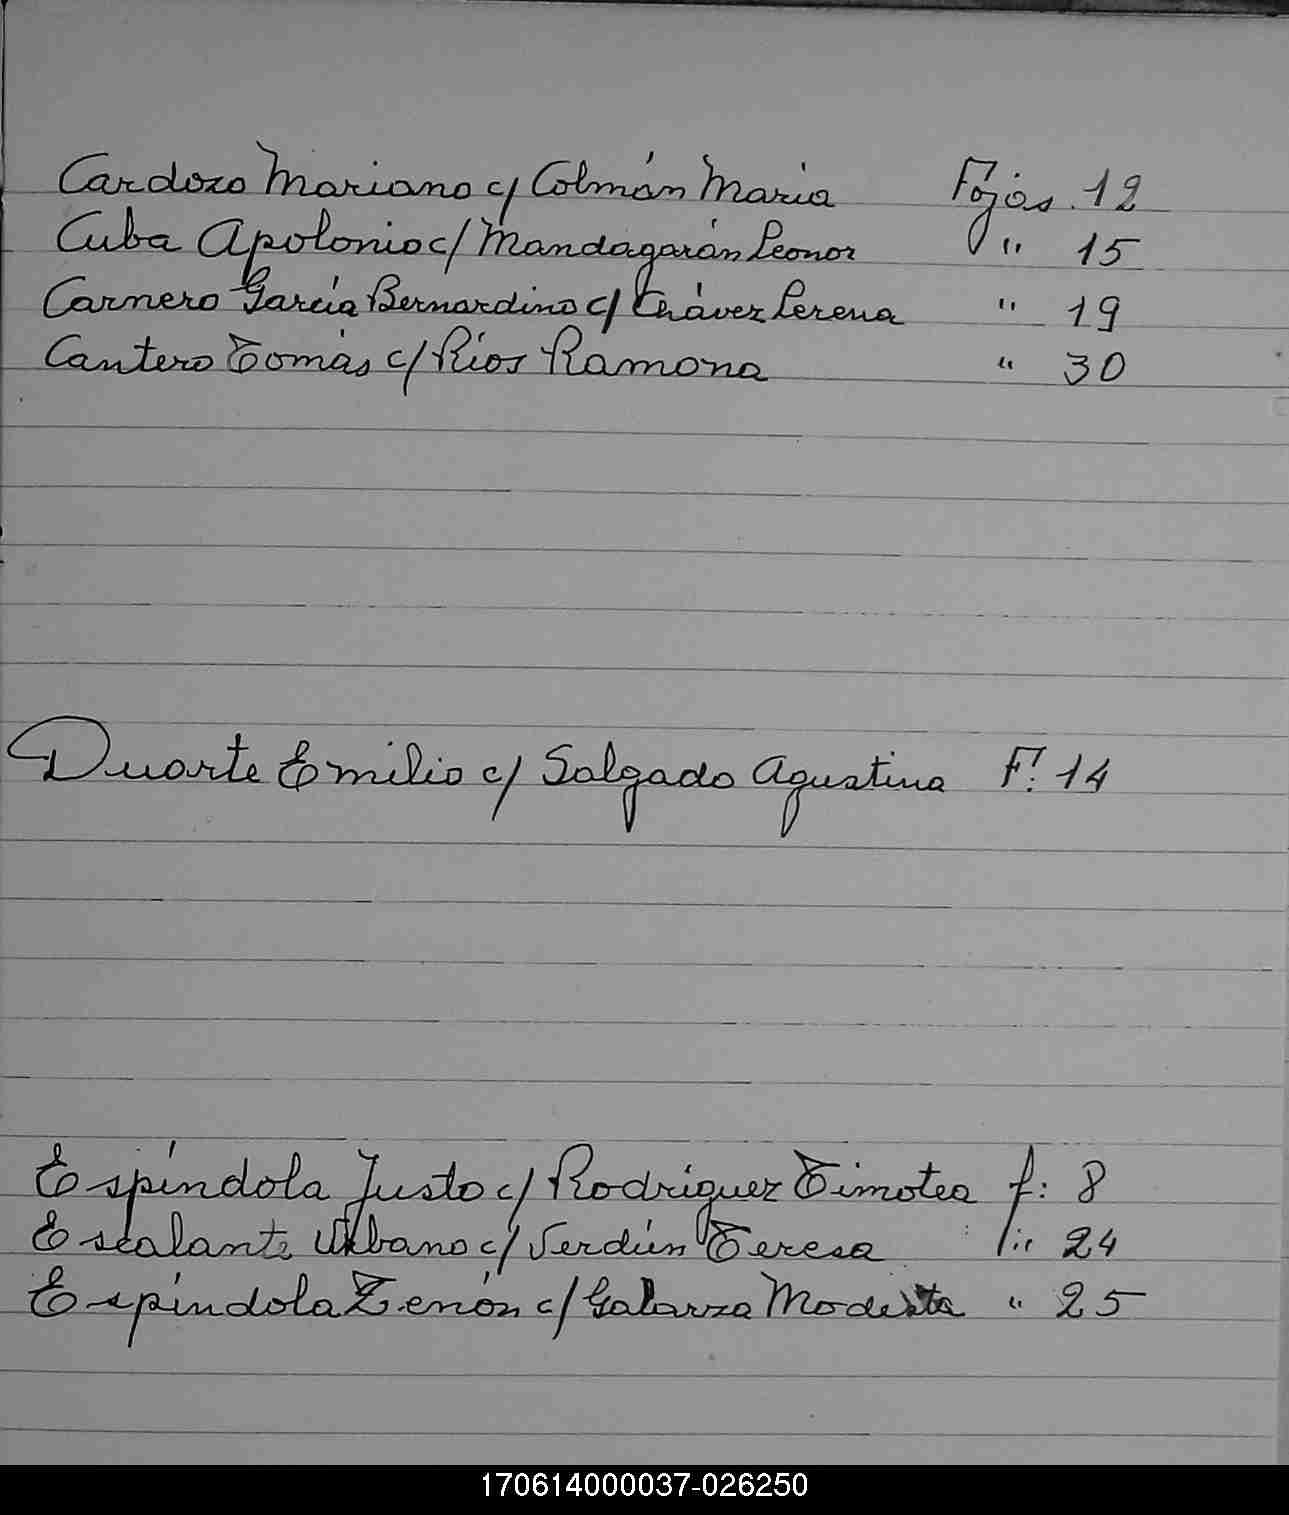 Cardozo Mariano c/ Colmán Maria Fojas 12
Cuba Apolonio c/ Mandagarán Leonor " 15
Carnero García Bernardino c/ Chávez Serena " 19
Cantero Tomás c/ Ríos Ramona " 30
Duarte Emilio c/ Salgado Agustina F. 14
Espíndola Justo c/ Rodríguez Timotea f: 8
Escalante Urbano c/ Verdún Teresa " 24
Espíndola Zenón c/ Galarza Modesta " 25
170614000037-026250